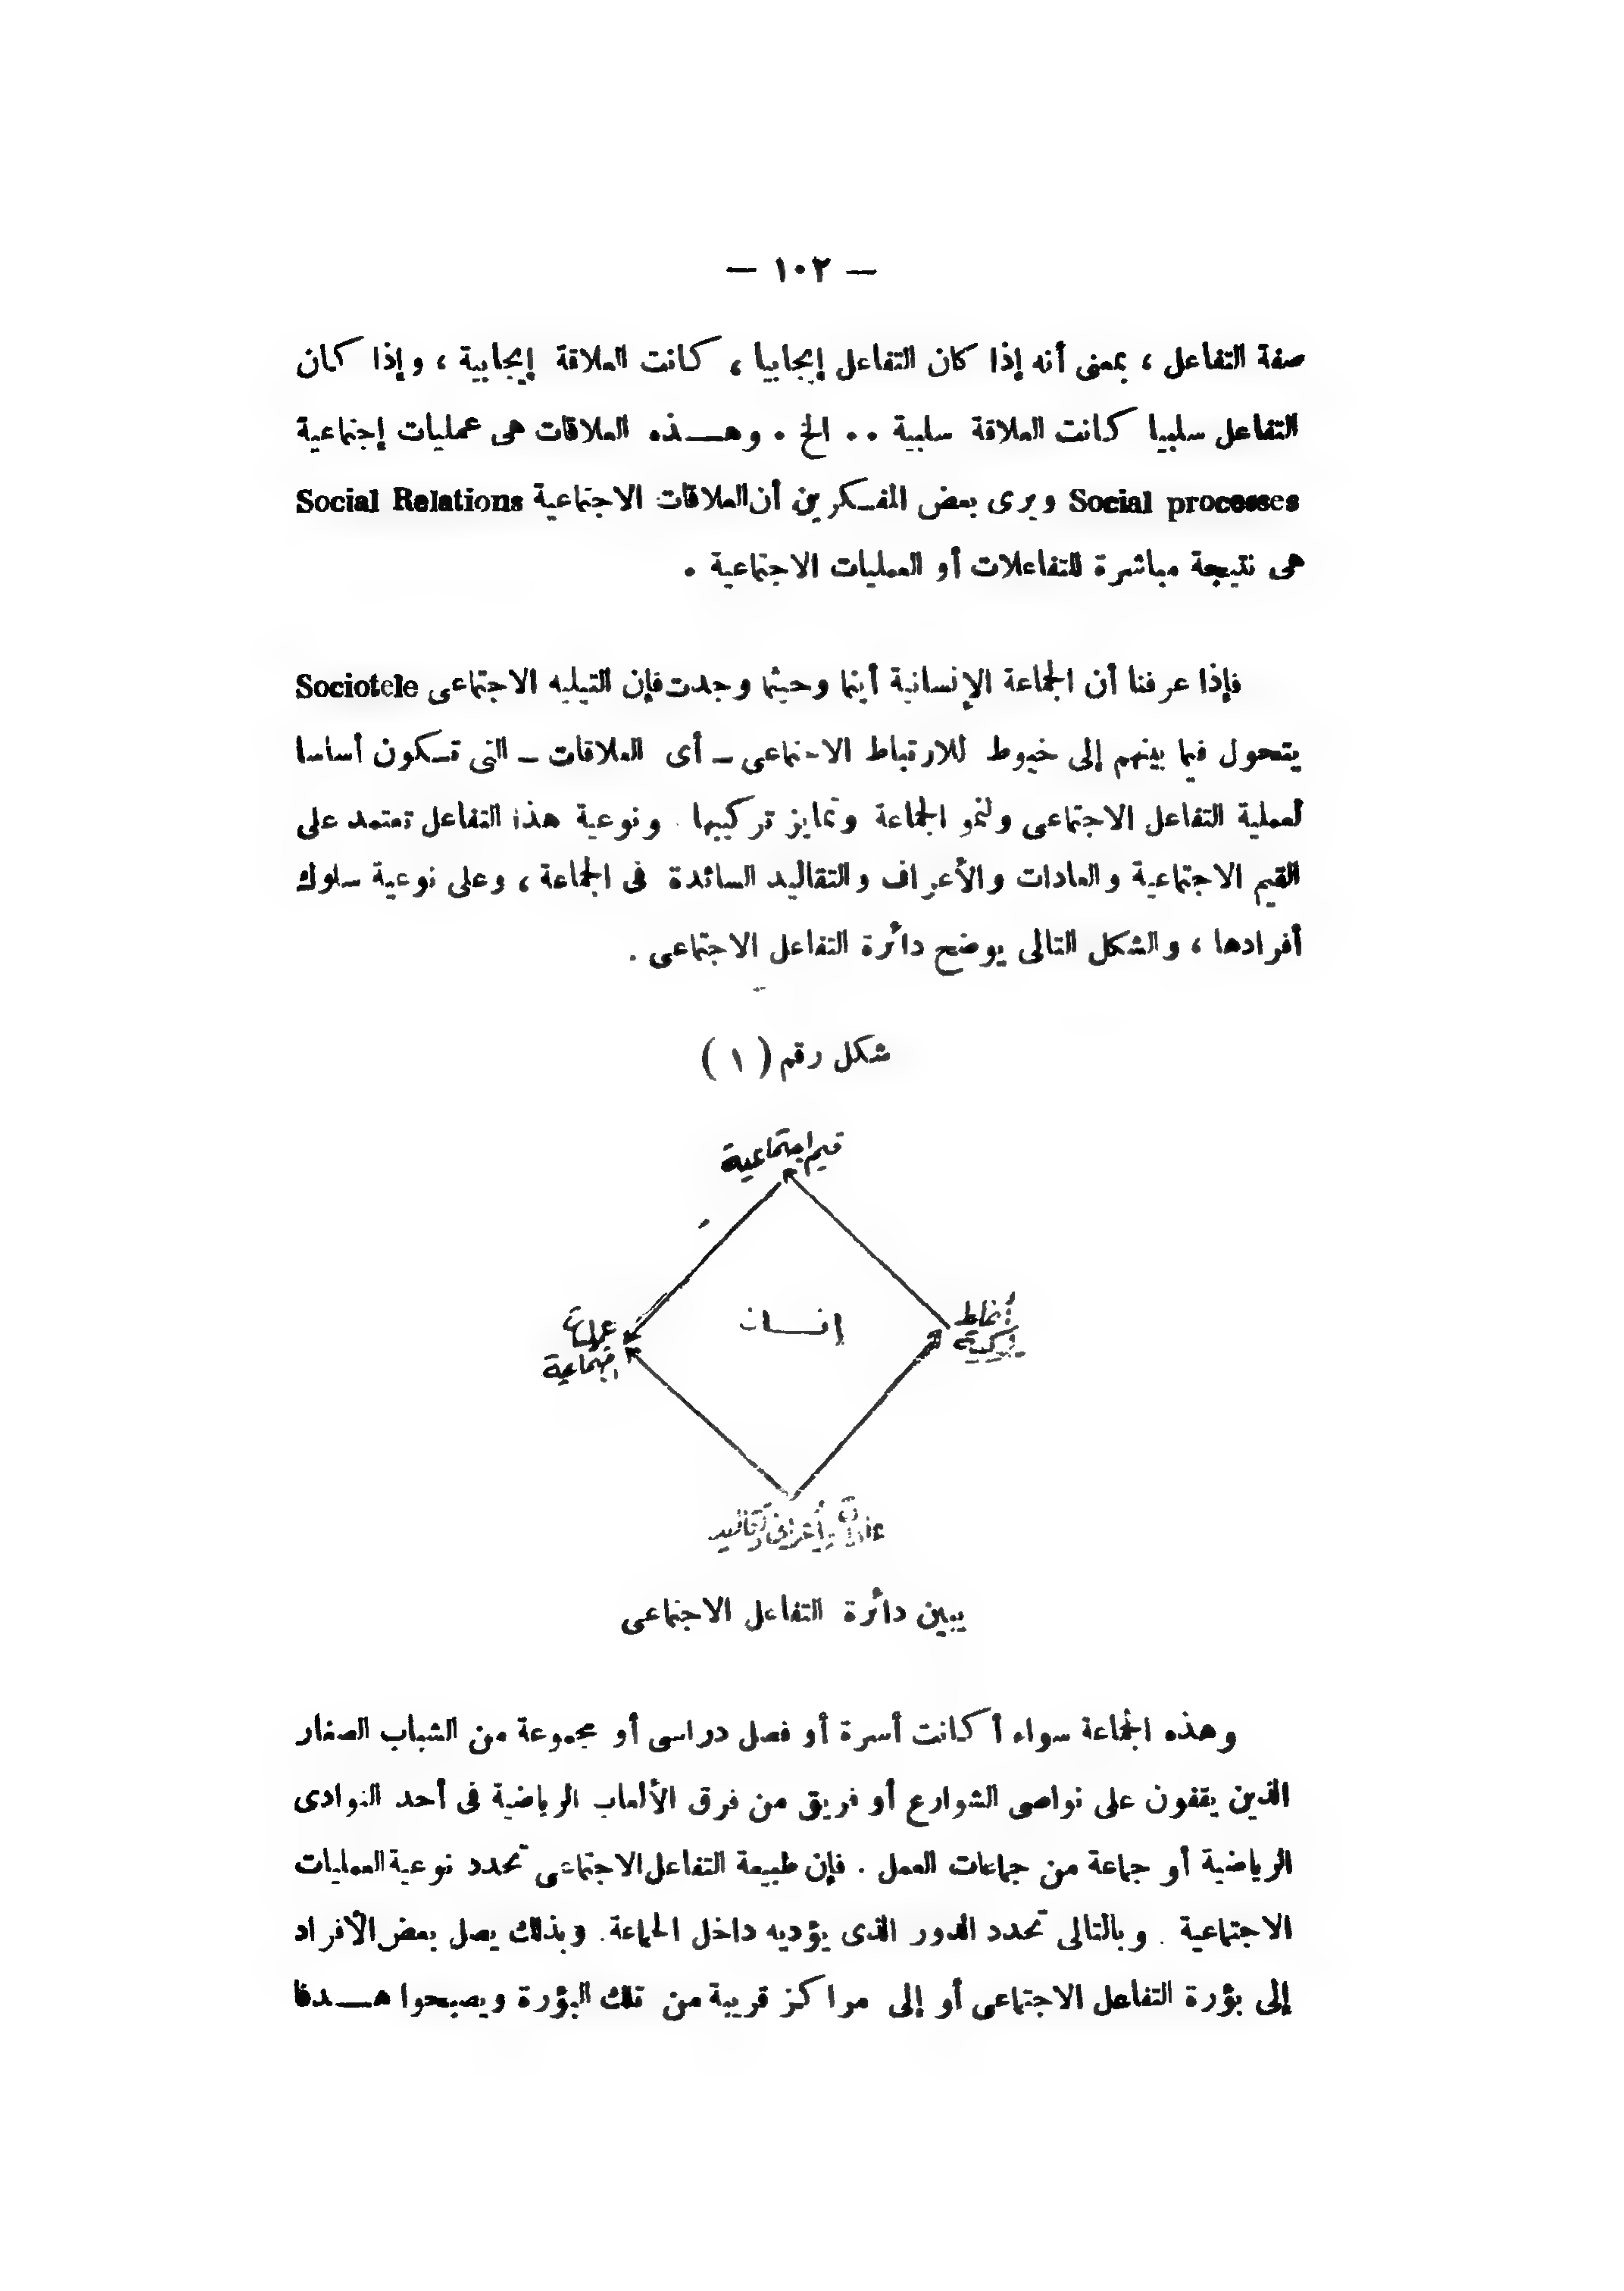 — ١٠٢ —
صفة التفاعل ، بمعنى أنه إذا كان التفاعل إيجابيا ، كانت العلاقة إيجابية ، وإذا كان
التفاعل سلبيا كانت العلاقة سلبية .. الخ . وهـــذه العلاقات هى عمليات إجتماعية
Social processes ويرى بعض المفـكرين أن العلاقات الاجتماعية Social Relations
هى نتيجة مباشرة للتفاعلات أو العمليات الاجتماعية .
فإذا عرفنا أن الجماعة الإنسانية أينما وحيثما وجدت فإن التيليه الاجتماعى Sociotele
يتحول فيما بينهم إلى خيوط للارتباط الاجتماعى ــ أى العلاقات ــ التى تـكون أساسا
لعملية التفاعل الاجتماعى ولنمو الجماعة وتمايز تركيبها . ونوعية هذا التفاعل تعتمد على
القيم الاجتماعية والعادات والأعراف والتقاليد السائدة فى الجماعة ، وعلى نوعية سلوك
أفرادها ، والشكل التالى يوضح دائرة التفاعل الاجتماعى .
شكل رقم ( ١ )
قيم اجتماعية
أنماط
عمليات
اجتماعية
إنســان
عادات وأعراف وتقاليد
يبين دائرة التفاعل الاجتماعى
وهذه الجماعة سواء أكانت أسرة أو فصل دراسى أو مجموعة من الشباب الصغار
الذين يقفون على نواصى الشوارع أو فريق من فرق الألعاب الرياضية فى أحد النوادى
الرياضية أو جماعة من جماعات العمل . فإن طبيعة التفاعل الاجتماعى تحدد نوعية العمليات
الاجتماعية . وبالتالى تحدد الدور الذى يؤديه داخل الجماعة . وبذلك يصل بعض الأفراد
إلى بؤرة التفاعل الاجتماعى أو إلى مراكز قريبة من تلك البؤرة ويصبحوا هـــدفا